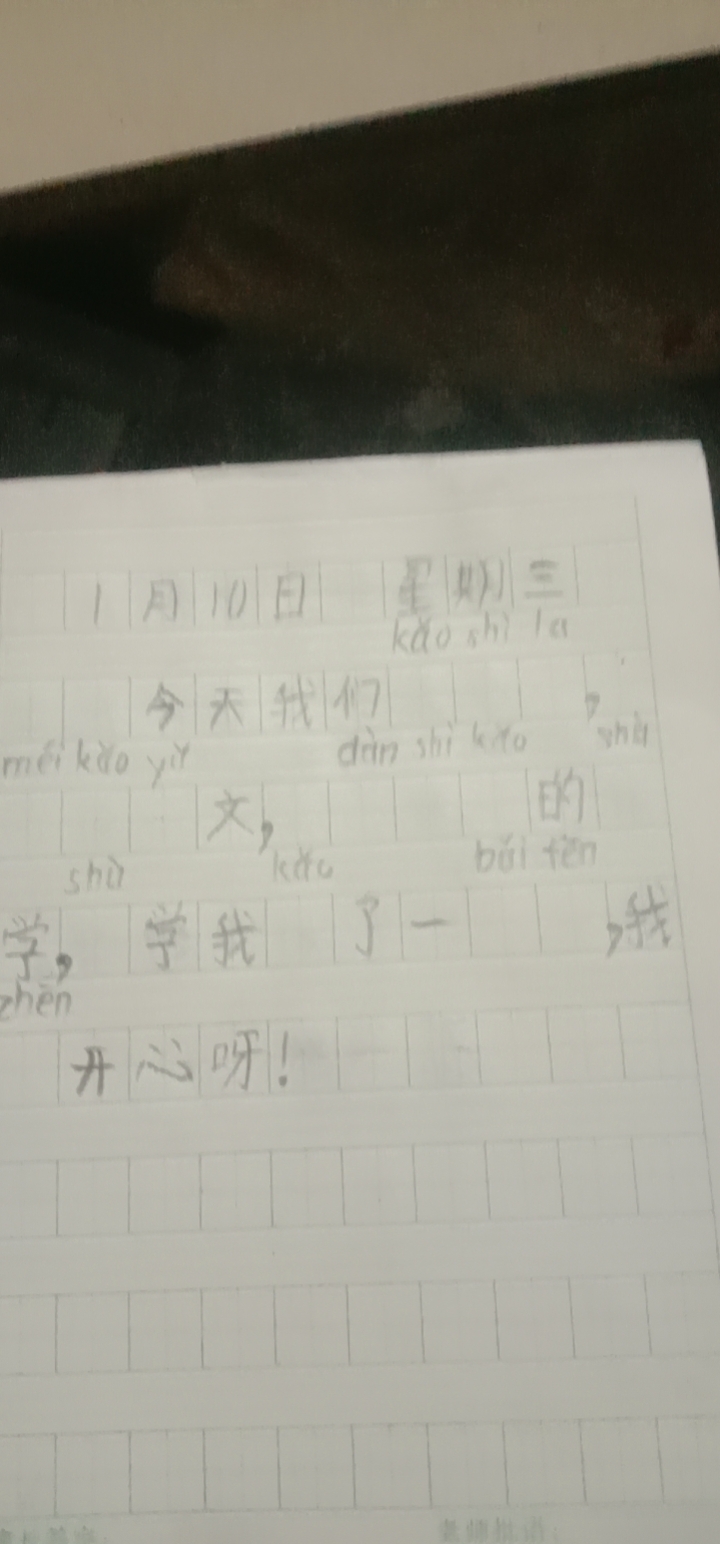 1月10日 星期三
kǎo shì la
今天我们 ,
méi kǎo yǔ dàn shì kǎo shù
文, 的
shù kǎo bǎi fēn
学, 学我 了一 ,我
zhēn
开心呀!
老师批语: